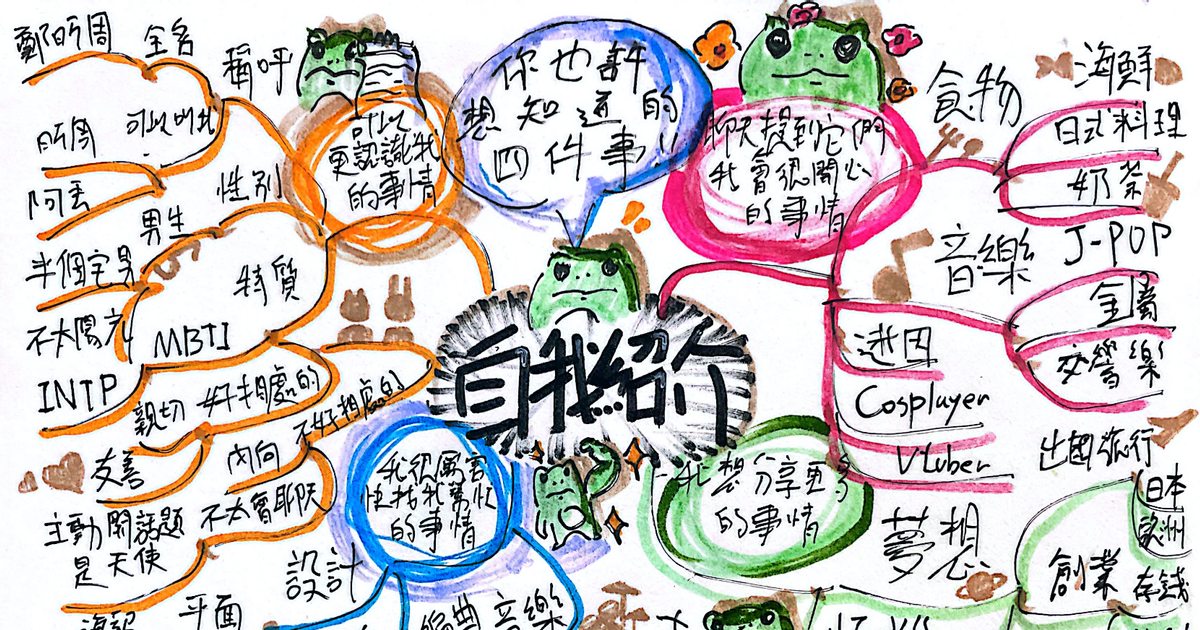 你也許
想知道的
四件事!
自我紹介
可以
更認識我
的事情
稱呼
全名
鄭昕周
可以叫我
昕周
阿丟
性別
男生
半個宅男
不太陽光
特質
MBTI
INTP
好相處的
親切
友善
不好相處的
內向
不太會聊天
主動開話題
是天使
聊天提到它們
我會很開心
的事情
食物
海鮮
日式料理
奶茶
音樂
J-POP
金屬
交響樂
迷因
Cosplayer
Vtuber
我很厲害
快找我幫忙
的事情
設計
平面
海報
編曲
音樂
我想分享更多
的事情
夢想
出國旅行
日本
歐洲
創業
存錢